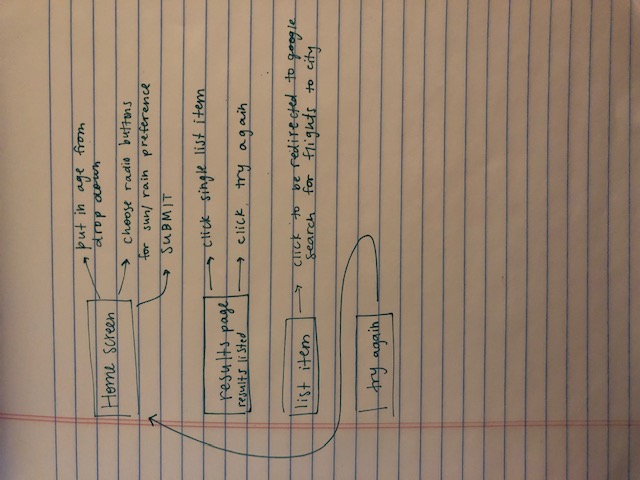 Home screen
put in age from
drop down
choose radio buttons
for sun/rain preference
SUBMIT
results page
results listed
click single list item
click try again
list item
click to be redirected to google
search for flights to city
try again